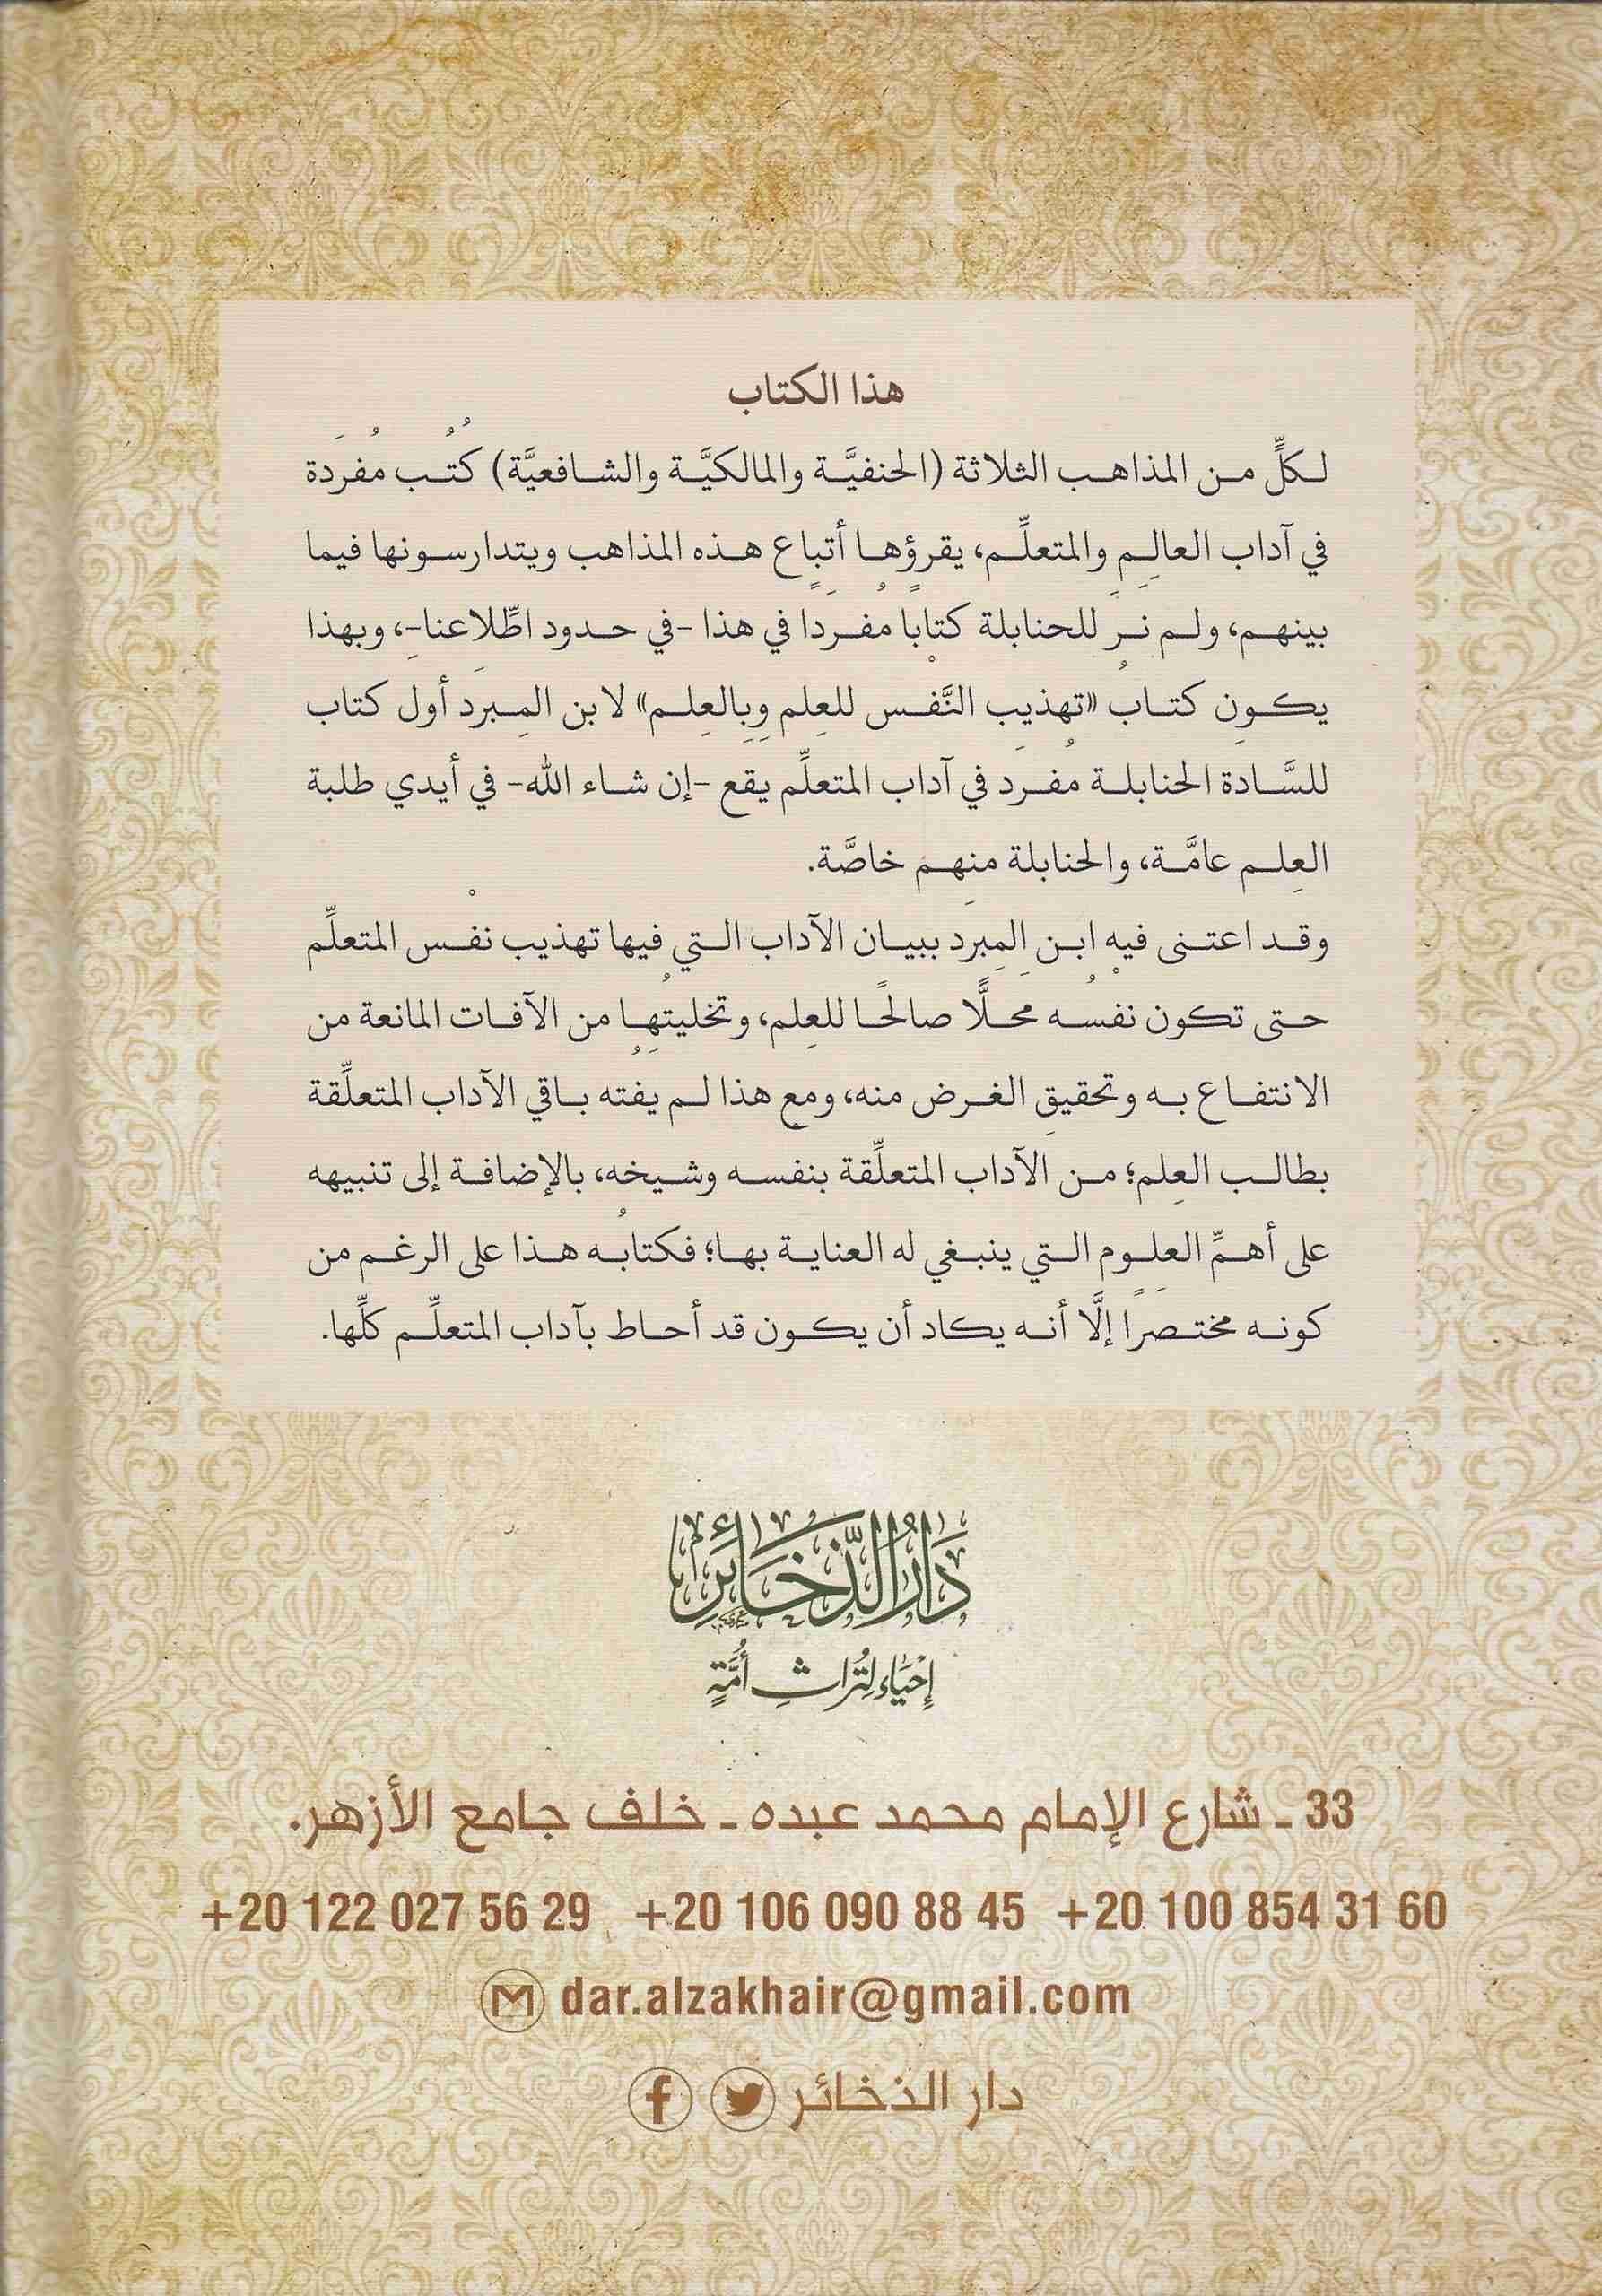 هذا الكتاب
لكلٍّ من المذاهب الثلاثة (الحنفيَّة والمالكيَّة والشافعيَّة) كُتُب مُفرَدة
في آداب العالِم والمتعلِّم، يقرؤها أتباع هذه المذاهب ويتدارسونها فيما
بينهم، ولم نرَ للحنابلة كتابًا مُفرَدًا في هذا -في حدود اطِّلاعنا-، وبهذا
يكون كتابُ «تهذيب النَّفْس للعِلم وبِالعِلم» لابن المِبرَد أول كتاب
للسَّادة الحنابلة مُفرَدٍ في آداب المتعلِّم يقع -إن شاء الله- في أيدي طلبة
العِلم عامَّة، والحنابلة منهم خاصَّة.
وقد اعتنى فيه ابن المِبرَد ببيان الآداب التي فيها تهذيب نفْس المتعلِّم
حتى تكون نفْسُه محلًّا صالحًا للعِلم، وتخليتُها من الآفات المانعة من
الانتفاع به وتحقيقِ الغرض منه، ومع هذا لم يفُتْه باقي الآداب المتعلِّقة
بطالب العِلم؛ من الآداب المتعلِّقة بنفسه وشيخه، بالإضافة إلى تنبيهه
على أهمِّ العلوم التي ينبغي له العناية بها؛ فكتابُه هذا على الرغم من
كونه مختصَرًا إلَّا أنه يكاد أن يكون قد أحاط بآداب المتعلِّم كلِّها.
دَارُ الذَّخَائِر
إِحْيَاء لِتُرَاثِ أُمَّةٍ
33 ـ شارع الإمام محمد عبده ـ خلف جامع الأزهر.
+20 122 027 56 29 +20 106 090 88 45 +20 100 854 31 60
dar.alzakhair@gmail.com
دار الذخائر